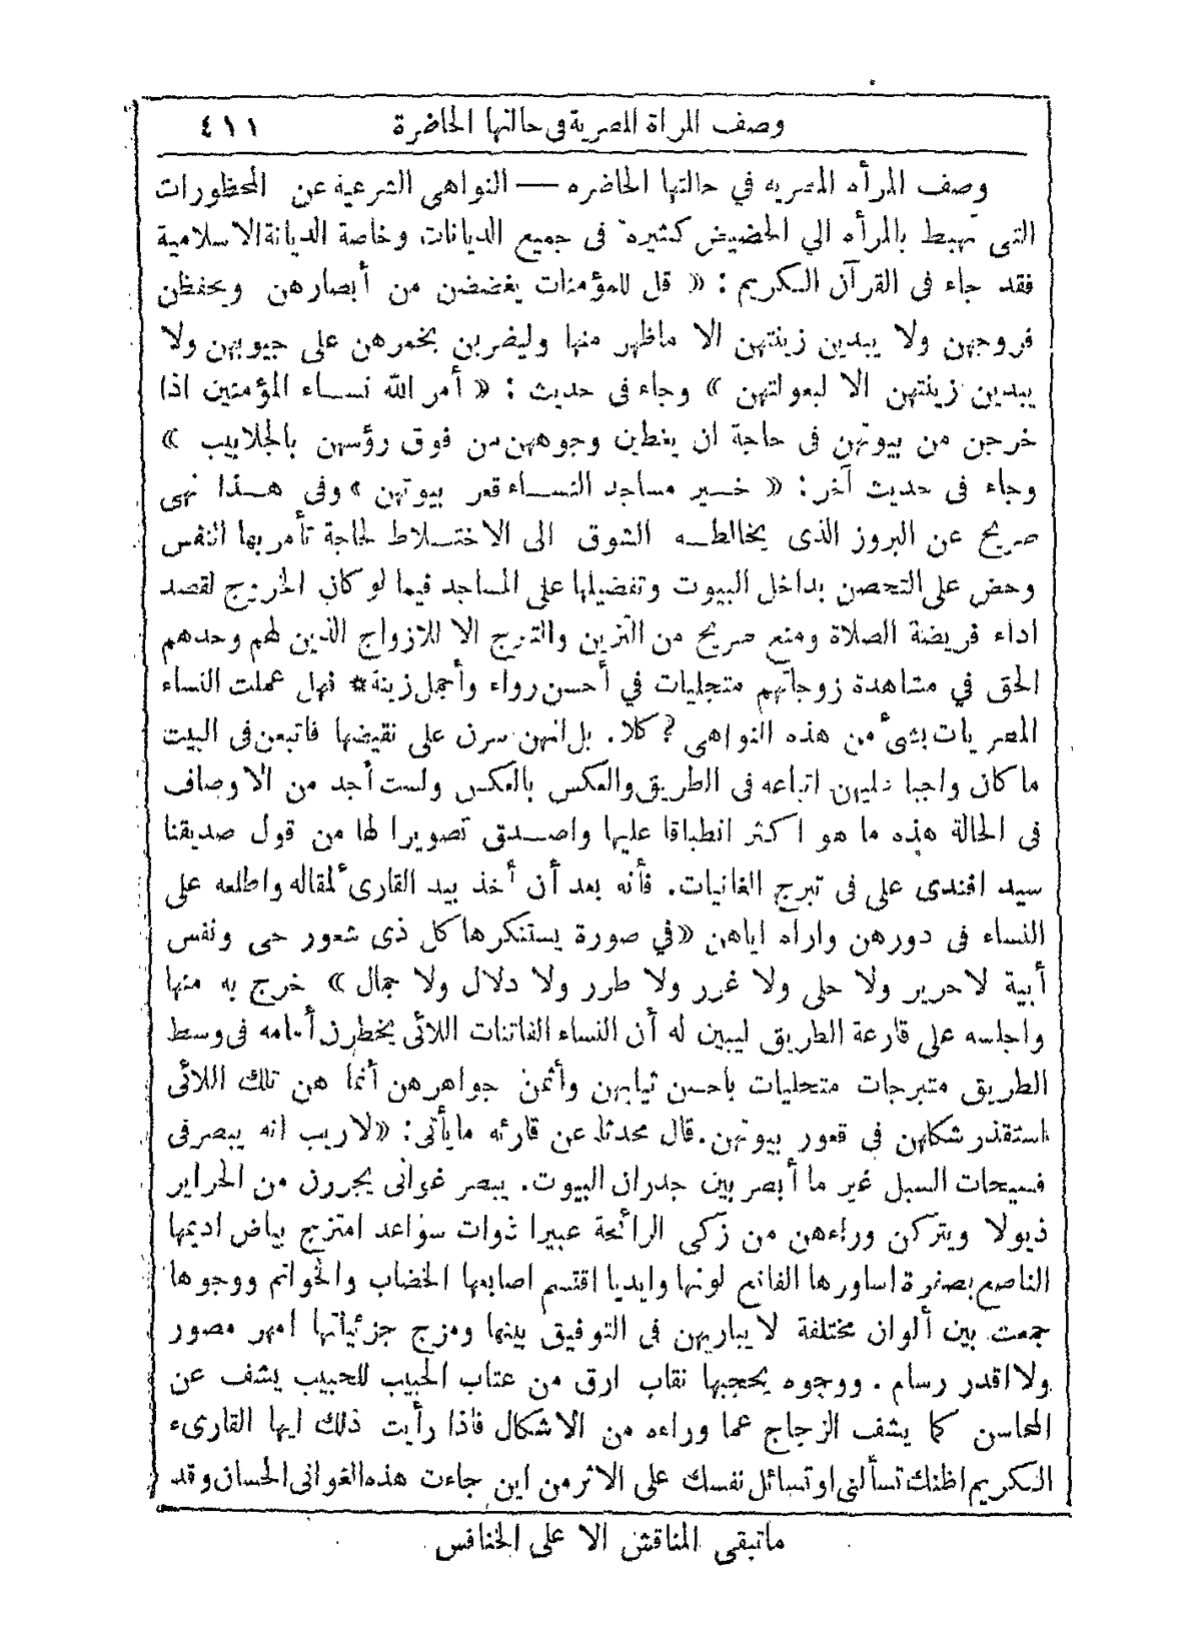 وصف المرأة المصرية فى حالتها الحاضرة ٤١١
وصف المرأه المصريه في حالتها الحاضره — النواهى الشرعية عن المحظورات
التى تهبط بالمرأه الي الحضيض كثيره فى جميع الديانات وخاصة الديانة الاسلامية
فقد جاء فى القرآن الكريم : « قل للمؤمنات يغضضن من أبصارهن ويحفظن
فروجهن ولا يبدين زينتهن الا ماظهر منها وليضربن بخمرهن على جيوبهن ولا
يبدين زينتهن الا لبعولتهن » وجاء فى حديث : « أمر الله نساء المؤمنين اذا
خرجن من بيوتهن فى حاجة ان يغطين وجوههن من فوق رؤسهن بالجلابيب »
وجاء فى حديث آخر : « خير مساجد النساء قعر بيوتهن » وفى هذا نهى
صريح عن البروز الذى يخالطه الشوق الى الاختلاط لحاجة تأمر بها النفس
وحض على التحصن بداخل البيوت وتفضيلها على المساجد فيما لو كان الخروج لقصد
اداء فريضة الصلاة ومنع صريح من التزين والتبرج الا للازواج الذين لهم وحدهم
الحق في مشاهدة زوجاتهم متجليات في أحسن رواء وأجمل زينة * فهل عملت النساء
المصريات بشئ من هذه النواهى ؟ كلا . بل انهن سرن على نقيضها فاتبعن فى البيت
ما كان واجبا عليهن اتباعه فى الطريق والعكس بالعكس ولست أجد من الاوصاف
فى الحالة هذه ما هو اكثر انطباقا عليها واصدق تصويرا لها من قول صديقنا
سيد افندى على فى تبرج الغانيات . فأنه بعد أن أخذ بيد القارئ لمقاله واطلعه على
النساء فى دورهن واراه اياهن « في صورة يستنكرها كل ذى شعور حى ونفس
أبية لا حرير ولا حلى ولا غرر ولا طرر ولا دلال ولا جمال » خرج به منها
واجلسه على قارعة الطريق ليبين له أن النساء الفاتنات اللائى يخطرن أمامه فى وسط
الطريق متبرجات متحليات باحسن ثيابهن وأثمن جواهرهن أنما هن تلك اللائى
استقذر شكلهن فى قعور بيوتهن . قال محدثا عن قارئه مايأتى : « لاريب انه يبصر فى
فسيحات السبل غير ما أبصر بين جدران البيوت . يبصر غوانى يجررن من الحراير
ذيولا ويتركن وراءهن من زكى الرائحة عبيرا ذوات سواعد امتزج بياض اديمها
الناصع بصفرة اساورها الفاقع لونها وايديا اقتسم اصابعها الخضاب والخواتم ووجوها
جمعت بين ألوان مختلفة لا يباريهن فى التوفيق بينها ومزج جزئياتها امهر مصور
ولا اقدر رسام . ووجوه يحجبها نقاب ارق من عتاب الحبيب للحبيب يشف عن
المحاسن كما يشف الزجاج عما وراءه من الاشكال فاذا رأيت ذلك ايها القارىء
الكريم اظنك تسألنى او تسائل نفسك على الاثر من اين جاءت هذه الغوانى الحسان وقد
ماتبقى المناقش الا على الخنافس